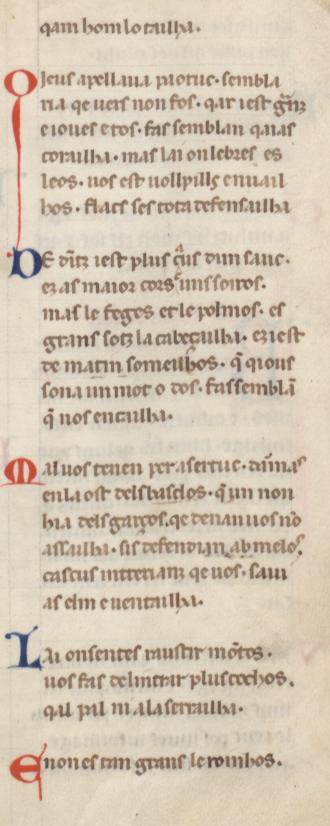 qam hom lo tailha.
Ojeus apellaua paotuc. sembla
ria qe uers non fos. qar iest grãz
e ioues e ros. fas semblan qaias
coralha. mas lai on lebres es
leos. uos est uollpillz e nuail
hos. flacs ses tota defensalha
DE dĩtz iest plus q̃us dun sauc.
ez as maior cors unssoiros.
mas le feges et le polmos. es
grans sotz la cabeçailha. ez iest
de matin someilhos. q̃ qious
sona un mot o dos. fas sembla
q̃ uos encalha.
Mal uos tenen per asertuc.
en la ost dels basclos. q̃ un non
hia dels garços. qe denan uos nõ
assailha. sis defendian ab melos.
cascus qe uos. saui
as elm e uentailha.
Lai on sentes raustir mõtos.
uos fas delinrar plus cochos.
qal pal ni ala serrailha.
E non es tan grans le ronhos.